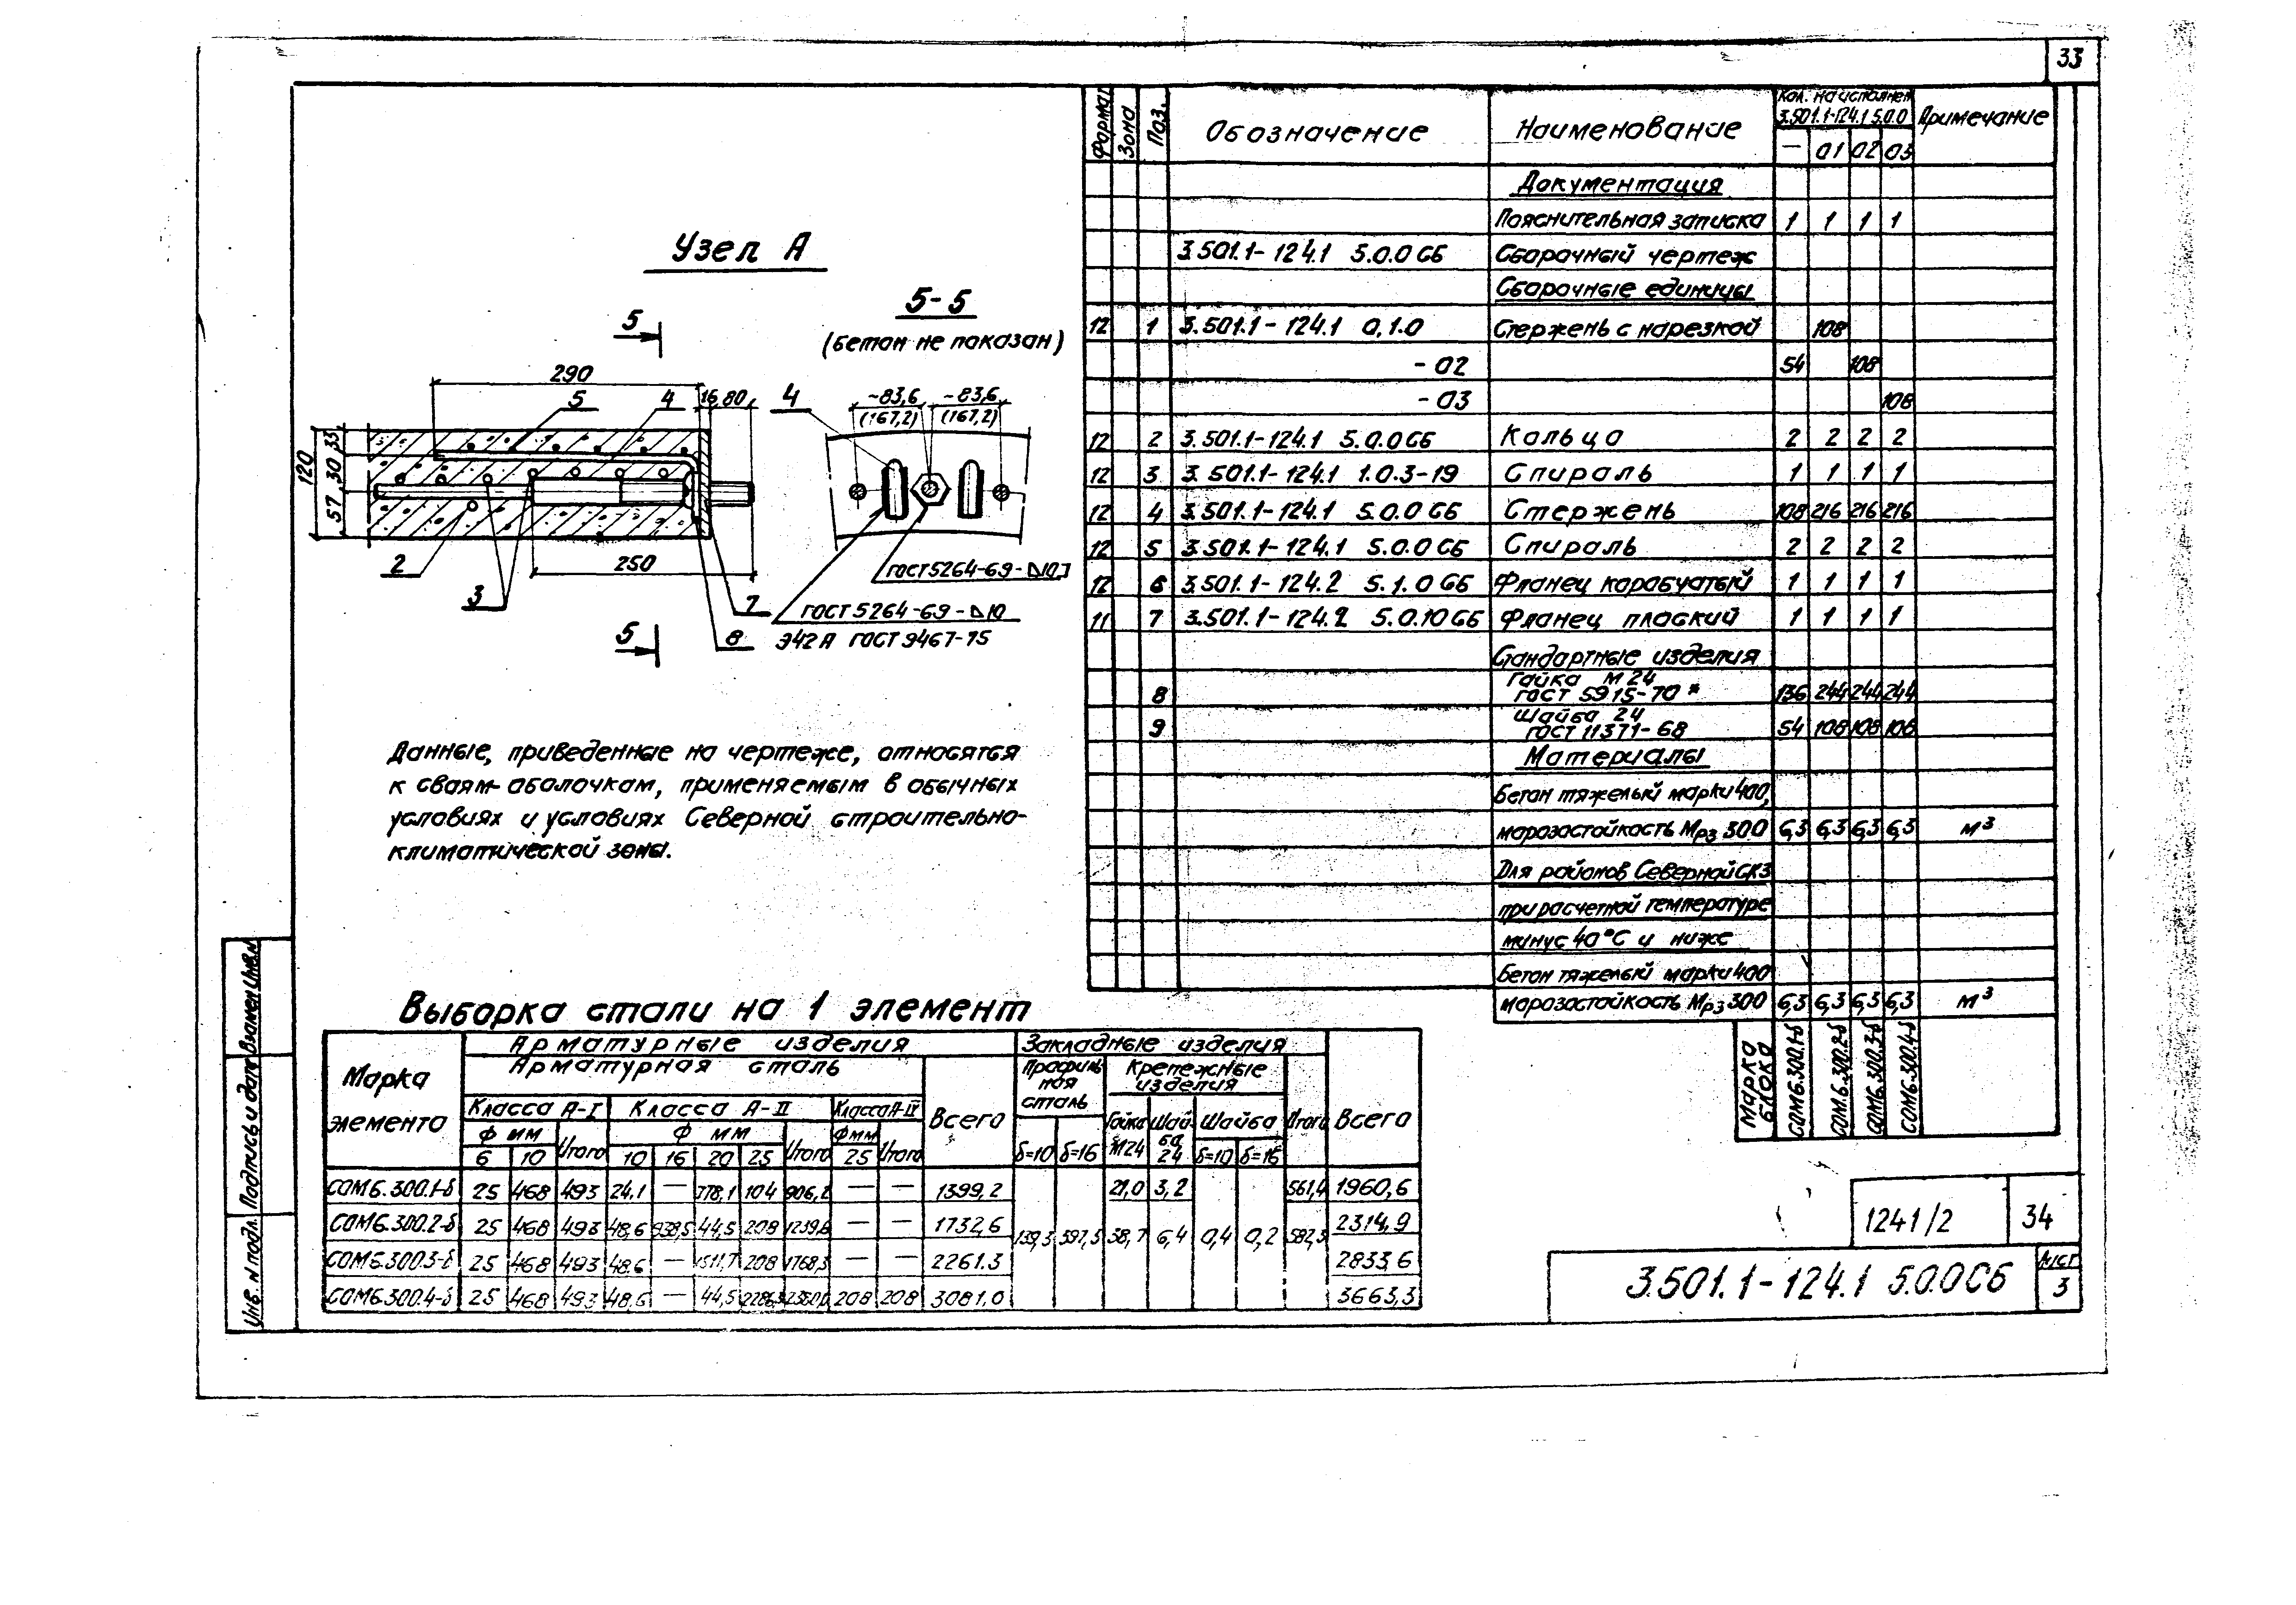 33
Узел А
5
5-5
(бетон не показан)
290
5
4
16
80
4
~83,6
~83,6
(167,2)
(167,2)
120
33
30
57
2
3
250
7
8
ГОСТ 5264-69-
ГОСТ 5264-69-⊿10
Э42А ГОСТ 9467-75
5
Данные, приведенные на чертеже, относятся
к сваям-оболочкам, применяемым в обычных
условиях и условиях Северной строительно-
климатической зоны.
Формат Зона Поз. Обозначение Наименование Кол. на исполнен. 3.501.1-124.1 5.0.0 Примечание
— 01 02 03
Документация
Пояснительная записка 1 1 1 1
3.501.1-124.1 5.0.0 СБ Сборочный чертеж
Сборочные единицы
12 1 3.501.1-124.1 0.1.0 Стержень с нарезкой 108
-02 54 108
-03 108
12 2 3.501.1-124.1 5.0.0СБ Кольцо 2 2 2 2
12 3 3.501.1-124.1 1.0.3-19 Спираль 1 1 1 1
12 4 3.501.1-124.1 5.0.0СБ Стержень 108 216 216 216
12 5 3.501.1-124.1 5.0.0СБ Спираль 2 2 2 2
12 6 3.501.1-124.2 5.1.0СБ Фланец коробчатый 1 1 1 1
11 7 3.501.1-124.2 5.0.10СБ Фланец плоский 1 1 1 1
Стандартные изделия
Гайка М24
8 ГОСТ 5915-70* 136 244 244 244
Шайба 24
9 ГОСТ 11371-68 54 108 108 108
Материалы
Бетон тяжелый марки 400,
морозостойкость Мрз 300 6,3 6,3 6,3 6,3 м³
Для районов Северной СКЗ
при расчетной температуре
минус 40°С и ниже
Бетон тяжелый марки 400
морозостойкость Мрз 300 6,3 6,3 6,3 6,3 м³
Марка блока СОМ6.300.1-б СОМ.6.300.2-б СОМ6.300.3-б СОМ6.300.4-б
Выборка стали на 1 элемент
Марка элемента Арматурные изделия Закладные изделия Всего
Арматурная сталь Всего Профильная сталь Крепежные изделия Итого
Класса А-I Класса А-II Класса А-IV Гайка М24 Шайба 24 Шайба
Ф мм Итого Ф мм Итого Ф мм Итого
6 10 10 16 20 25 25 δ=10 δ=16 δ=10 δ=16
СОМ6.300.1-б 25 468 493 24,1 — 778,1 104 906,2 — — 1399,2 21,0 3,2 561,4 1960,6
СОМ6.300.2-б 25 468 493 48,6 938,5 44,5 208 1239,6 — — 1732,6 139,3 397,5 38,7 6,4 0,4 0,2 582,3 2314,9
СОМ6.300.3-б 25 468 493 48,6 — 1511,7 208 1768,3 — — 2261.3 2833,6
СОМ6.300.4-б 25 468 493 48,6 — 44,5 208 208 3081,0 3663,3
Инв. N подл. Подпись и дата Взамен Инв.N
1241/2 34
3.501.1-124.1 5.0.0СБ
Лист
3